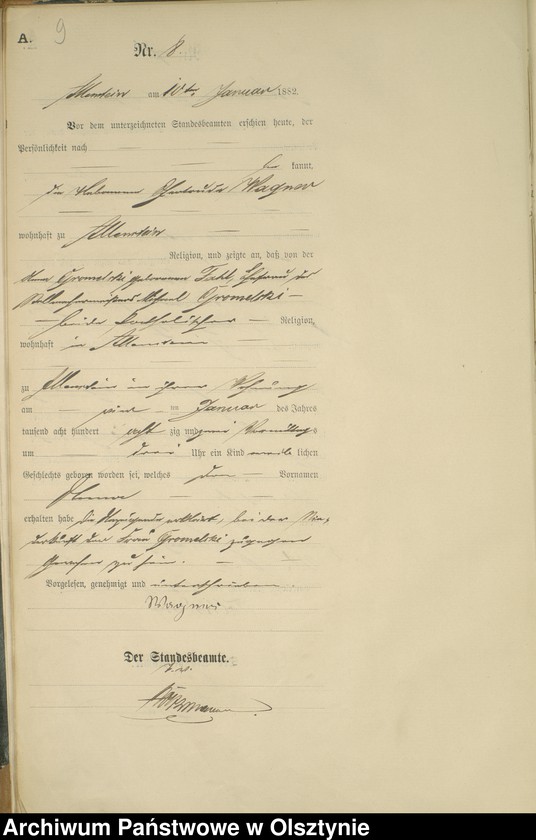 A. 9
Nr. 8.
Allenstein am 10ten Januar 1882.
Vor dem unterzeichneten Standesbeamten erschien heute, der
Persönlichkeit nach
be kannt,
die Hebamme Gertruda Wagner
wohnhaft zu Allenstein
Religion, und zeigte an, daß von der
Gromelski geborenen Ehefrau des
Gromelski
beide katholischer Religion,
wohnhaft in Allenstein
zu Allenstein in ihrer Wohnung
am vier ten Januar des Jahres
tausend acht hundert acht zig und zwei Vormittags
um drei Uhr ein Kind weib lichen
Geschlechts geboren worden sei, welches den Vornamen
erhalten habe. Die Anzeigende erklärt, bei der Nie-
derkunft der Frau Gromelski zugegen
gewesen zu sein.
Vorgelesen, genehmigt und unterschrieben
Wagner
Der Standesbeamte.
Archiwum Państwowe w Olsztynie